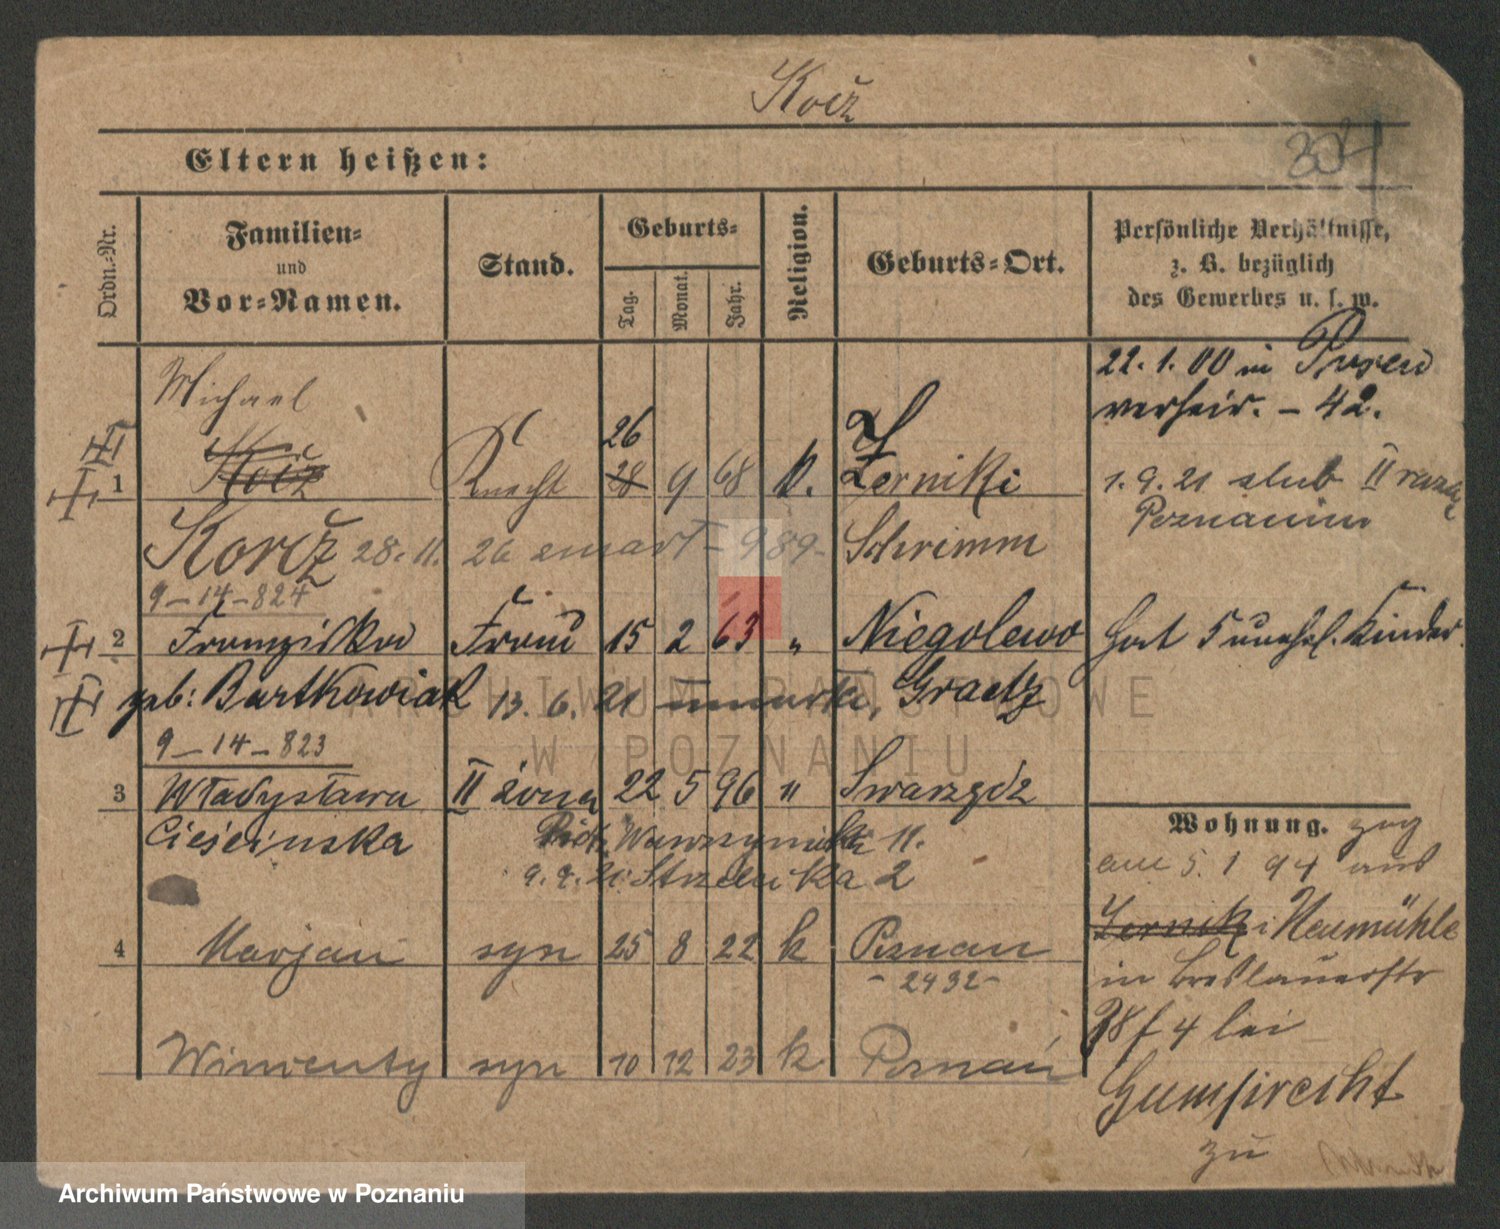 Kocz
304
Eltern heißen:
Ordn.-Nr.
Familien-
und
Vor-Namen.
Stand.
Geburts-
Tag.
Monat.
Jahr.
Religion.
Geburts-Ort.
Persönliche Verhältnisse,
z. B. bezüglich
des Gewerbes u. s. w.
Michael
22. 1. 00 in Posen
verheir. - 42.
1 Knecht 26 28 9 68 k. Zerniki
1. 9. 21 ślub II razą
Poznaniu
28. 11. 26 zmarł - 989 - Schrimm
9 - 14 - 824
2 Franziska Frau 15 2 63 " Niegolewo
Hat 5 unehel. Kinder.
geb: Bartkowiak 13. 6. 21 zmarła, Graetz
9 - 14 - 823
3 Władysława II żona 22 5 96 " Swarzędz
Cieścinska
11.
9. 9. 21 Strzelecka 2
4 Marjan syn 25 8 22 k Poznan
- 2432 -
Wincenty syn 10 12 23 k Poznań
Wohnung. zog
am 5. 1 94 aus
Zerniki Neumühle
in Breslauerstr
38 f 4 bei
Gumprecht
zu
ARCHIWUM PAŃSTWOWE
W POZNANIU
Archiwum Państwowe w Poznaniu